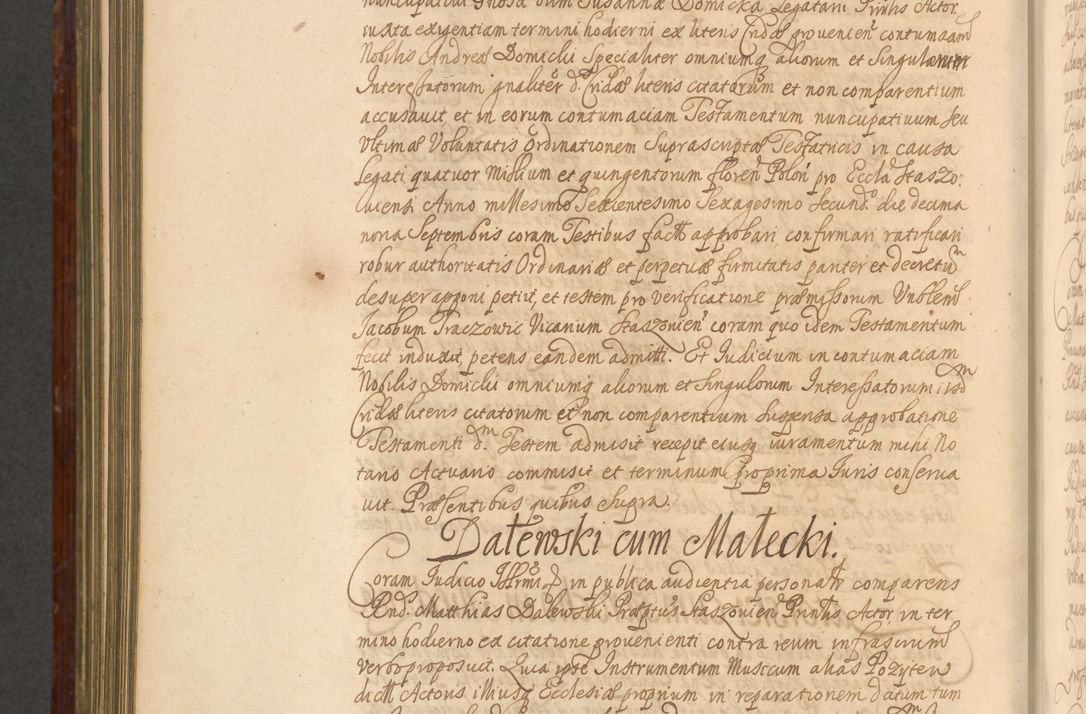 nuncupativi Gnosa olim Susanna Domicka Legatarii Prntis Actor
iuxta exigentiam termini hodierni ex literis Cridae provenien contumaam
Nobilis Andreae Domiclii Specialiter omniumq aliorum et Singulorum
Interessatorum gnaliter d. Cridae literis citatorum et non comparentium
accusavit et in eorum contumaciam Testamentum nuncupativum seu
Vltimae Voluntatis Ordinationem Suprascriptae Testatricis in causa
Legati quatuor Millium et quingentorum floren Polon pro Eccla Staszo.
viensi Anno millesimo Sexcentesimo Sexagesimo Secund. die decima
nona Septembris coram Testibus factt approbari confirmari ratificari
robur authoritatis Ordinariae et perpetuae firmitatis pariter et decretu
desuper apponi petivt, et testem pro verificatione praemissorum Vnblem
Jacobum Traczowic Vicarium Staszovien coram quo idem Testamentum
fecit induxit, petens eandem admitti. Et Iudicium in contumaciam
Nobilis Domiclii omniumq aliorum et singulorum Interessatorum
Cridae literis citatorum et non comparentium Suspensa approbatione
Testamenti d. Testem admisit recepit eiusq iuramentum mihi No
tario Actuario commisit et terminum Proprima Iuris conserva
vit. Praesentibus quibus Supra.
Datewski cum Matecki.
Coram Iudicio in publica audientia personatr comparens
Rnd. Matthias Dalewski Praeptus Staszovien Prntis Actor in ter
mino hodierno ex citatione provenienti contra reum infrascrium
Verbo proposuit. Quia ipse Instrumentum Musicum alias Pozytew
dictt Actoris illiusq Ecclesiae proprium in reparationem datum tum